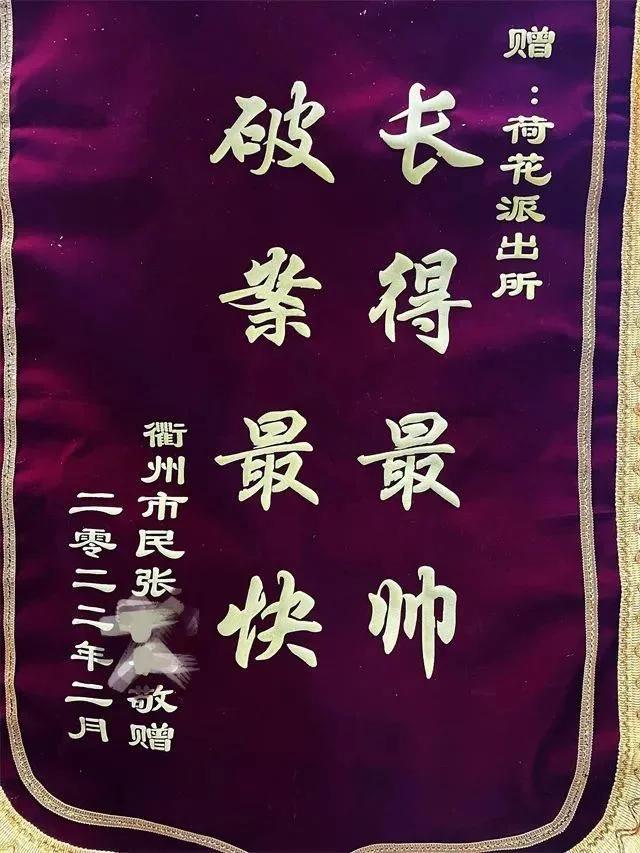 赠：荷花派出所
长得最帅
破案最快
衢州市民张敬赠
二零二二年二月